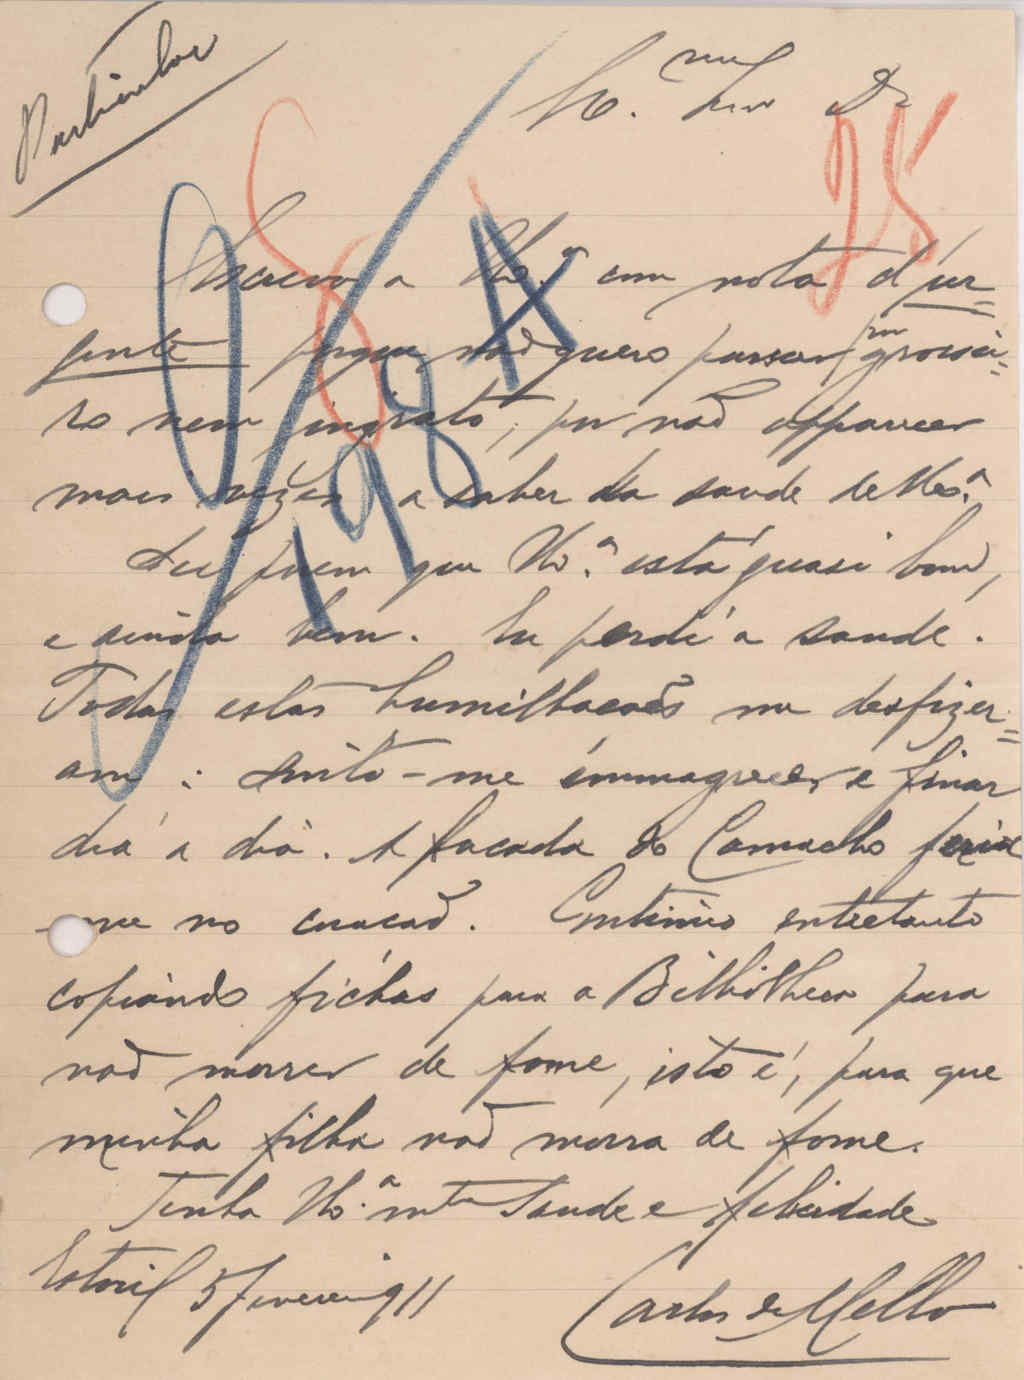 Particular
M.mo Exmo Dr
25
Escrevo a V. Ex.a com nota d'ur=
gente porque não quero passar por grossei=
ro nem ingrato, por não apparecer
mais vezes a saber da saude de V. Ex.a
Sei porem que V. Ex.a está quasi bom,
e ainda bem. Eu perdi a saude.
Todas estas humilhações me desfizer=
am: sinto-me emmagrecer e finar
dia a dia. A facada do Camacho feriu
me no coração. Continúo entretanto
copiando fichas para a Bibliotheca para
não morrer de fome, isto é, para que
minha filha não morra de fome.
Tenha V. Ex.a mta saude e felicidade
Estoril 5 Fevereiro 911
Carlos de Mello